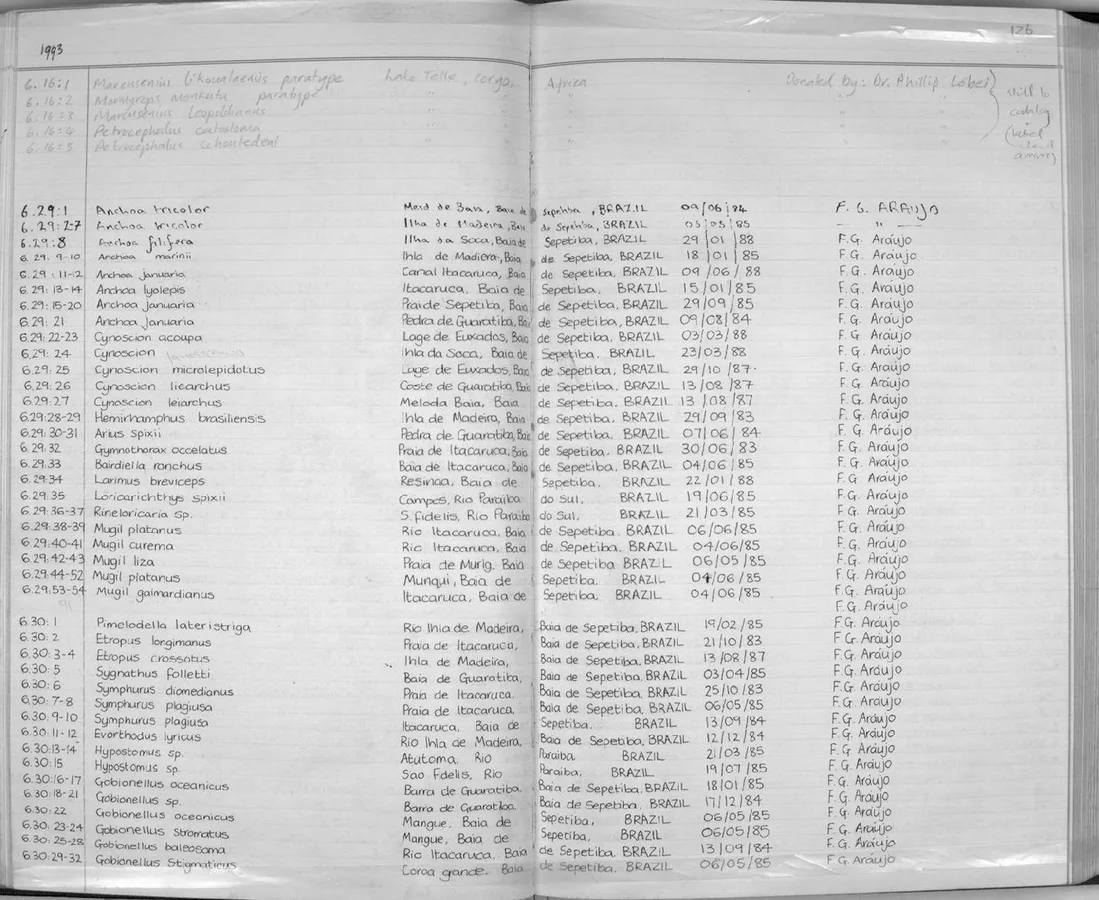 126
1993
6.16:1 Marcusenius likoualaenis paratype Lake Telle, Congo, Africa Donated by: Dr. Phillip Lobel
6.16:2 paratype " " " " still to
6.16:3 Marcusenius Leopoldianus " " " " catalog
6.16:4 Petrocephalus catostoma " " " " (label
6.16:5 Petrocephalus schoutedeni " " " "
6.29:1 Anchoa tricolor Meio de Baia, Baie de Sepetiba, BRAZIL 09/06/84 F. G. ARAUJO
6.29:2-7 Anchoa tricolor Ilha de Madeira, Baia de Sepetiba, BRAZIL 05/05/85 — " —
6.29:8 Anchoa filifera Ilha da Soca, Baia de Sepetiba, BRAZIL 29/01/88 F.G. Araújo
6.29:9-10 Anchoa marinii Ihla de Madiera, Baia de Sepetiba, BRAZIL 18/01/85 F.G. Araújo
6.29:11-12 Anchoa januaria Canal Itacaruca, Baia de Sepetiba, BRAZIL 09/06/88 F.G. Araújo
6.29:13-14 Anchoa lyolepis Itacaruca, Baia de Sepetiba, BRAZIL 15/01/85 F.G. Araújo
6.29:15-20 Anchoa januaria Praide Sepetiba, Baia de Sepetiba, BRAZIL 29/09/85 F.G. Araújo
6.29:21 Anchoa januaria Pedra de Guaratiba, Bai de Sepetiba, BRAZIL 09/08/84 F.G. Araújo
6.29:22-23 Cynoscion acoupa Lage de Euxados, Baia de Sepetiba, BRAZIL 03/03/88 F.G. Araújo
6.29:24 Cynoscion Ihla da Soca, Baia de Sepetiba, BRAZIL 23/03/88 F.G. Araújo
6.29:25 Cynoscion microlepidotus Lage de Euxados, Baia de Sepetiba, BRAZIL 29/10/87. F.G. Araújo
6.29:26 Cynoscion licarchus Coste de Guaratiba, Baia de Sepetiba, BRAZIL 13/08/87 F.G. Araújo
6.29:27 Cynoscion leiarchus Meloda Baia, Baia de Sepetiba, BRAZIL 13/08/87 F.G. Araújo
6.29:28-29 Hemirhamphus brasiliensis Ihla de Madeira, Baia de Sepetiba, BRAZIL 29/09/83 F.G. Araújo
6.29:30-31 Arius spixii Pedra de Guaratiba, Baia de Sepetiba. BRAZIL 07/06/84 F.G. Araújo
6.29.32 Gymnothorax occelatus Praia de Itacaruca, Baia de Sepetiba, BRAZIL 30/06/83 F.G. Araújo
6.29.33 Bairdiella ronchus Baia de Itacaruca, Baia de Sepetiba, BRAZIL 04/06/85 F.G. Araújo
6.29.34 Larimus breviceps Resinga, Baia de Sepetiba, BRAZIL 22/01/88 F.G. Araújo
6.29.35 Loricarichthys spixii Campes, Rio Paraiba do Sul, BRAZIL 19/06/85 F.G. Araújo
6.29:36-37 Rineloricaria sp. S. fidelis, Rio Paraiba do Sul, BRAZIL 21/03/85 F.G. Araújo
6.29:38-39 Mugil platanus Rio Itacaruca, Baia de Sepetiba, BRAZIL 06/06/85 F.G. Araújo
6.29:40-41 Mugil curema Rio Itacaruca, Baia de Sepetiba. BRAZIL 04/06/85 F.G. Araújo
6.29:42-43 Mugil liza Praia de Muriq. Baia de Sepetiba BRAZIL 06/05/85 F.G. Araújo
6.29:44-52 Mugil platanus Munqui, Baia de Sepetiba. BRAZIL 04/06/85 F.G. Araújo
6.29:53-54 Mugil gaimardianus Itacaruca, Baia de Sepetiba. BRAZIL 04/06/85 F.G. Araújo
91 F.G. Araújo
6.30:1 Pimelodella lateristriga Rio Ihia de Madeira, Baia de Sepetiba, BRAZIL 19/02/85 F.G. Araújo
6.30:2 Etropus longimanus Praia de Itacaruca, Baia de Sepetiba, BRAZIL 21/10/83 F.G. Araújo
6.30:3-4 Etropus crossotus Ihla de Madeira, Baia de Sepetiba, BRAZIL 13/08/87 F.G. Araújo
6.30:5 Sygnathus folletti Baia de Guaratiba, Baia de Sepetiba, BRAZIL 03/04/85 F.G. Araújo
6.30:6 Symphurus diomedianus Praia de Itacaruca, Baia de Sepetiba, BRAZIL 25/10/83 F.G. Araújo
6.30:7-8 Symphurus plagiusa Praia de Itacaruca, Baia de Sepetiba, BRAZIL 06/05/85 F.G. Araújo
6.30:9-10 Symphurus plagiusa Itacaruca, Baia de Sepetiba. BRAZIL 13/09/84 F.G. Araújo
6.30:11-12 Evorthodus lyricus Rio Ihla de Madeira, Baia de Sepetiba, BRAZIL 12/12/84 F.G. Araújo
6.30:13-14 Hypostomus sp. Atutoma, Rio Paraiba BRAZIL 21/03/85 F.G. Araújo
6.30:15 Hypostomus sp. Sao Fdelis, Rio Paraiba, BRAZIL 19/07/85 F.G. Araújo
6.30:16-17 Gobionellus oceanicus Barra de Guaratiba, Baia de Sepetiba, BRAZIL 18/01/85 F.G. Araújo
6.30:18-21 Gobionellus sp. Barra de Guaratiba Baia de Sepetiba, BRAZIL 17/12/84 F.G. Araújo
6.30:22 Gobionellus oceanicus Mangue, Baia de Sepetiba, BRAZIL 06/05/85 F.G. Araújo
6.30:23-24 Gobionellus Stromatus Mangue, Baia de Sepetiba, BRAZIL 06/05/85 F.G. Araújo
6.30:25-28 Gobionellus baleosoma Rio Itacaruca, Baia de Sepetiba, BRAZIL 13/09/84 F.G. Araújo
6.30:29-32 Gobionellus Stigmaticus Coroa grande. Baia de Sepetiba, BRAZIL 06/05/85 F.G. Araújo